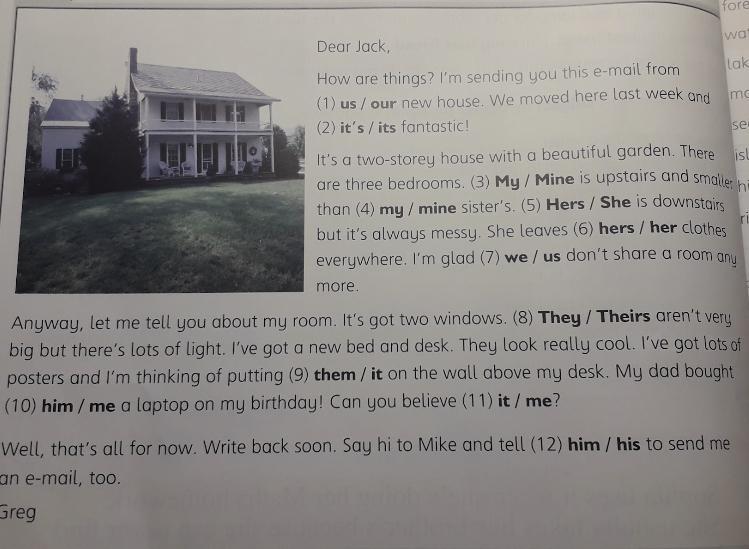 Dear Jack,
How are things? I'm sending you this e-mail from
(1) us / our new house. We moved here last week and
(2) it's / its fantastic!
It's a two-storey house with a beautiful garden. There
are three bedrooms. (3) My / Mine is upstairs and smaller
than (4) my / mine sister's. (5) Hers / She is downstairs
but it's always messy. She leaves (6) hers / her clothes
everywhere. I'm glad (7) we / us don't share a room any
more.
Anyway, let me tell you about my room. It's got two windows. (8) They / Theirs aren't very
big but there's lots of light. I've got a new bed and desk. They look really cool. I've got lots of
posters and I'm thinking of putting (9) them / it on the wall above my desk. My dad bought
(10) him / me a laptop on my birthday! Can you believe (11) it / me?
Well, that's all for now. Write back soon. Say hi to Mike and tell (12) him / his to send me
an e-mail, too.
Greg